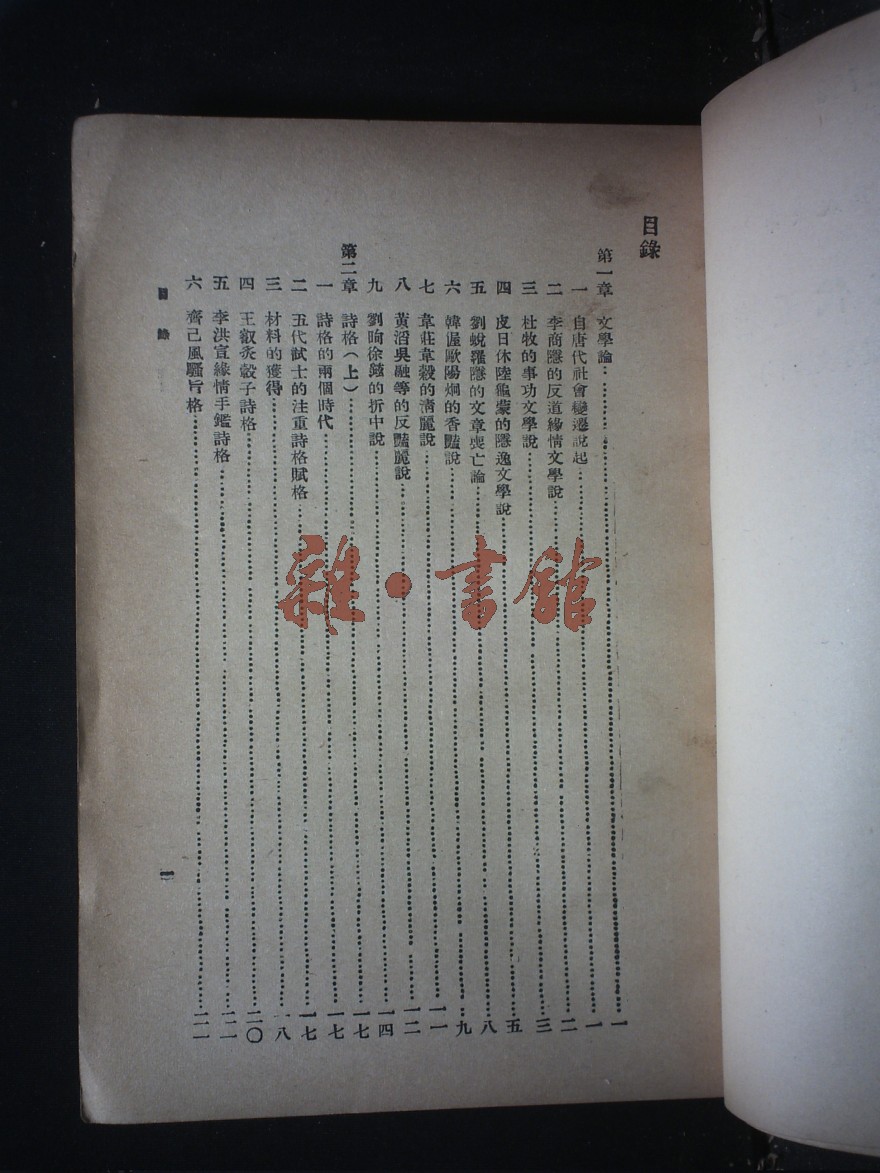 目錄
第一章 文學論……一
一 自唐代社會變遷說起……一
二 李商隱的反道緣情文學說……二
三 杜牧的事功文學說……三
四 皮日休陸龜蒙的隱逸文學說……五
五 劉蛻羅隱的文章喪亡論……八
六 韓偓歐陽烱的香豔說……九
七 韋莊韋縠的清麗說……一一
八 黃滔吳融等的反豔麗說……一二
九 劉昫徐鉉的折中說……一四
第二章 詩格(上)……一七
一 詩格的兩個時代……一七
二 五代試士的注重詩格賦格……一七
三 材料的獲得……一八
四 王叡炙轂子詩格……二〇
五 李洪宣緣情手鑑詩格……二一
六 齊己風騷旨格……二二
目錄
一
雜·書館